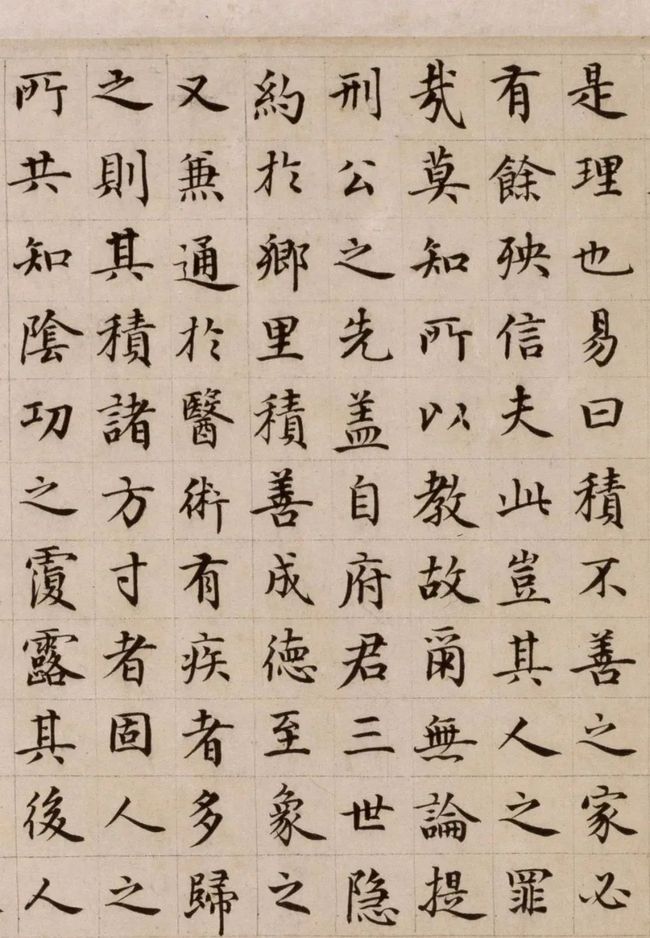 是理也易曰積不善之家必
有餘殃信夫此豈其人之罪
㦲莫知所以教故爾無論提
刑公之先盖自府君三世隐
約於鄉里積善成德至象之
又兼通於醫術有疾者多歸
之則其積諸方寸者固人之
所共知陰功之覆露其後人